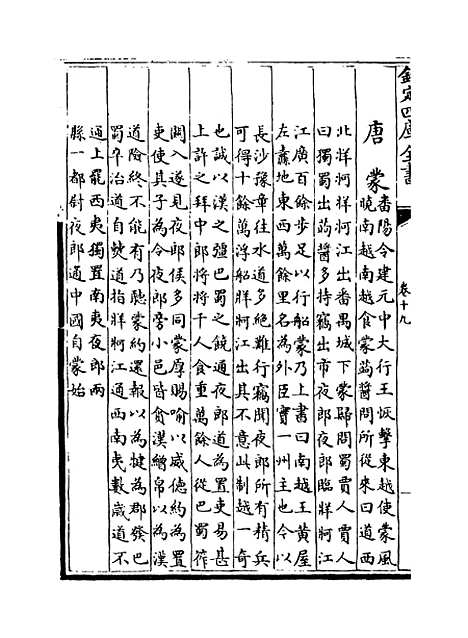 欽定四庫全書
卷十九
唐蒙
番陽令建元中大行王恢擊東越使蒙風
曉南越南越食蒙蒟醬問所從來曰道西
北牂牁牂牁江出番禺城下蒙歸問蜀賈人賈人
曰獨蜀出蒟醬多持竊出市夜郎夜郎臨牂牁江
江廣百餘步足以行船蒙乃上書曰南越王黃屋
左纛地東西萬餘里名為外臣實一州主也今以
長沙豫章往水道多絕難行竊聞夜郎所有精兵
可得十餘萬浮船牂牁江出其不意此制越一奇
也誠以漢之彊巴蜀之饒通夜郎道為置吏易甚
上許之拜中郎將將千人食重萬餘人從巴蜀筰
關入遂見夜郎侯多同蒙厚賜喻以威德約為置
吏使其子為令夜郎旁小邑皆貪漢繒帛以為漢
道險終不能有乃聽蒙約還報以為犍為郡發巴
蜀卒治道自僰道指牂牁江通西南夷數歲道不
通上罷西夷獨置南夷夜郎兩
縣一都尉夜郎通中國自蒙始